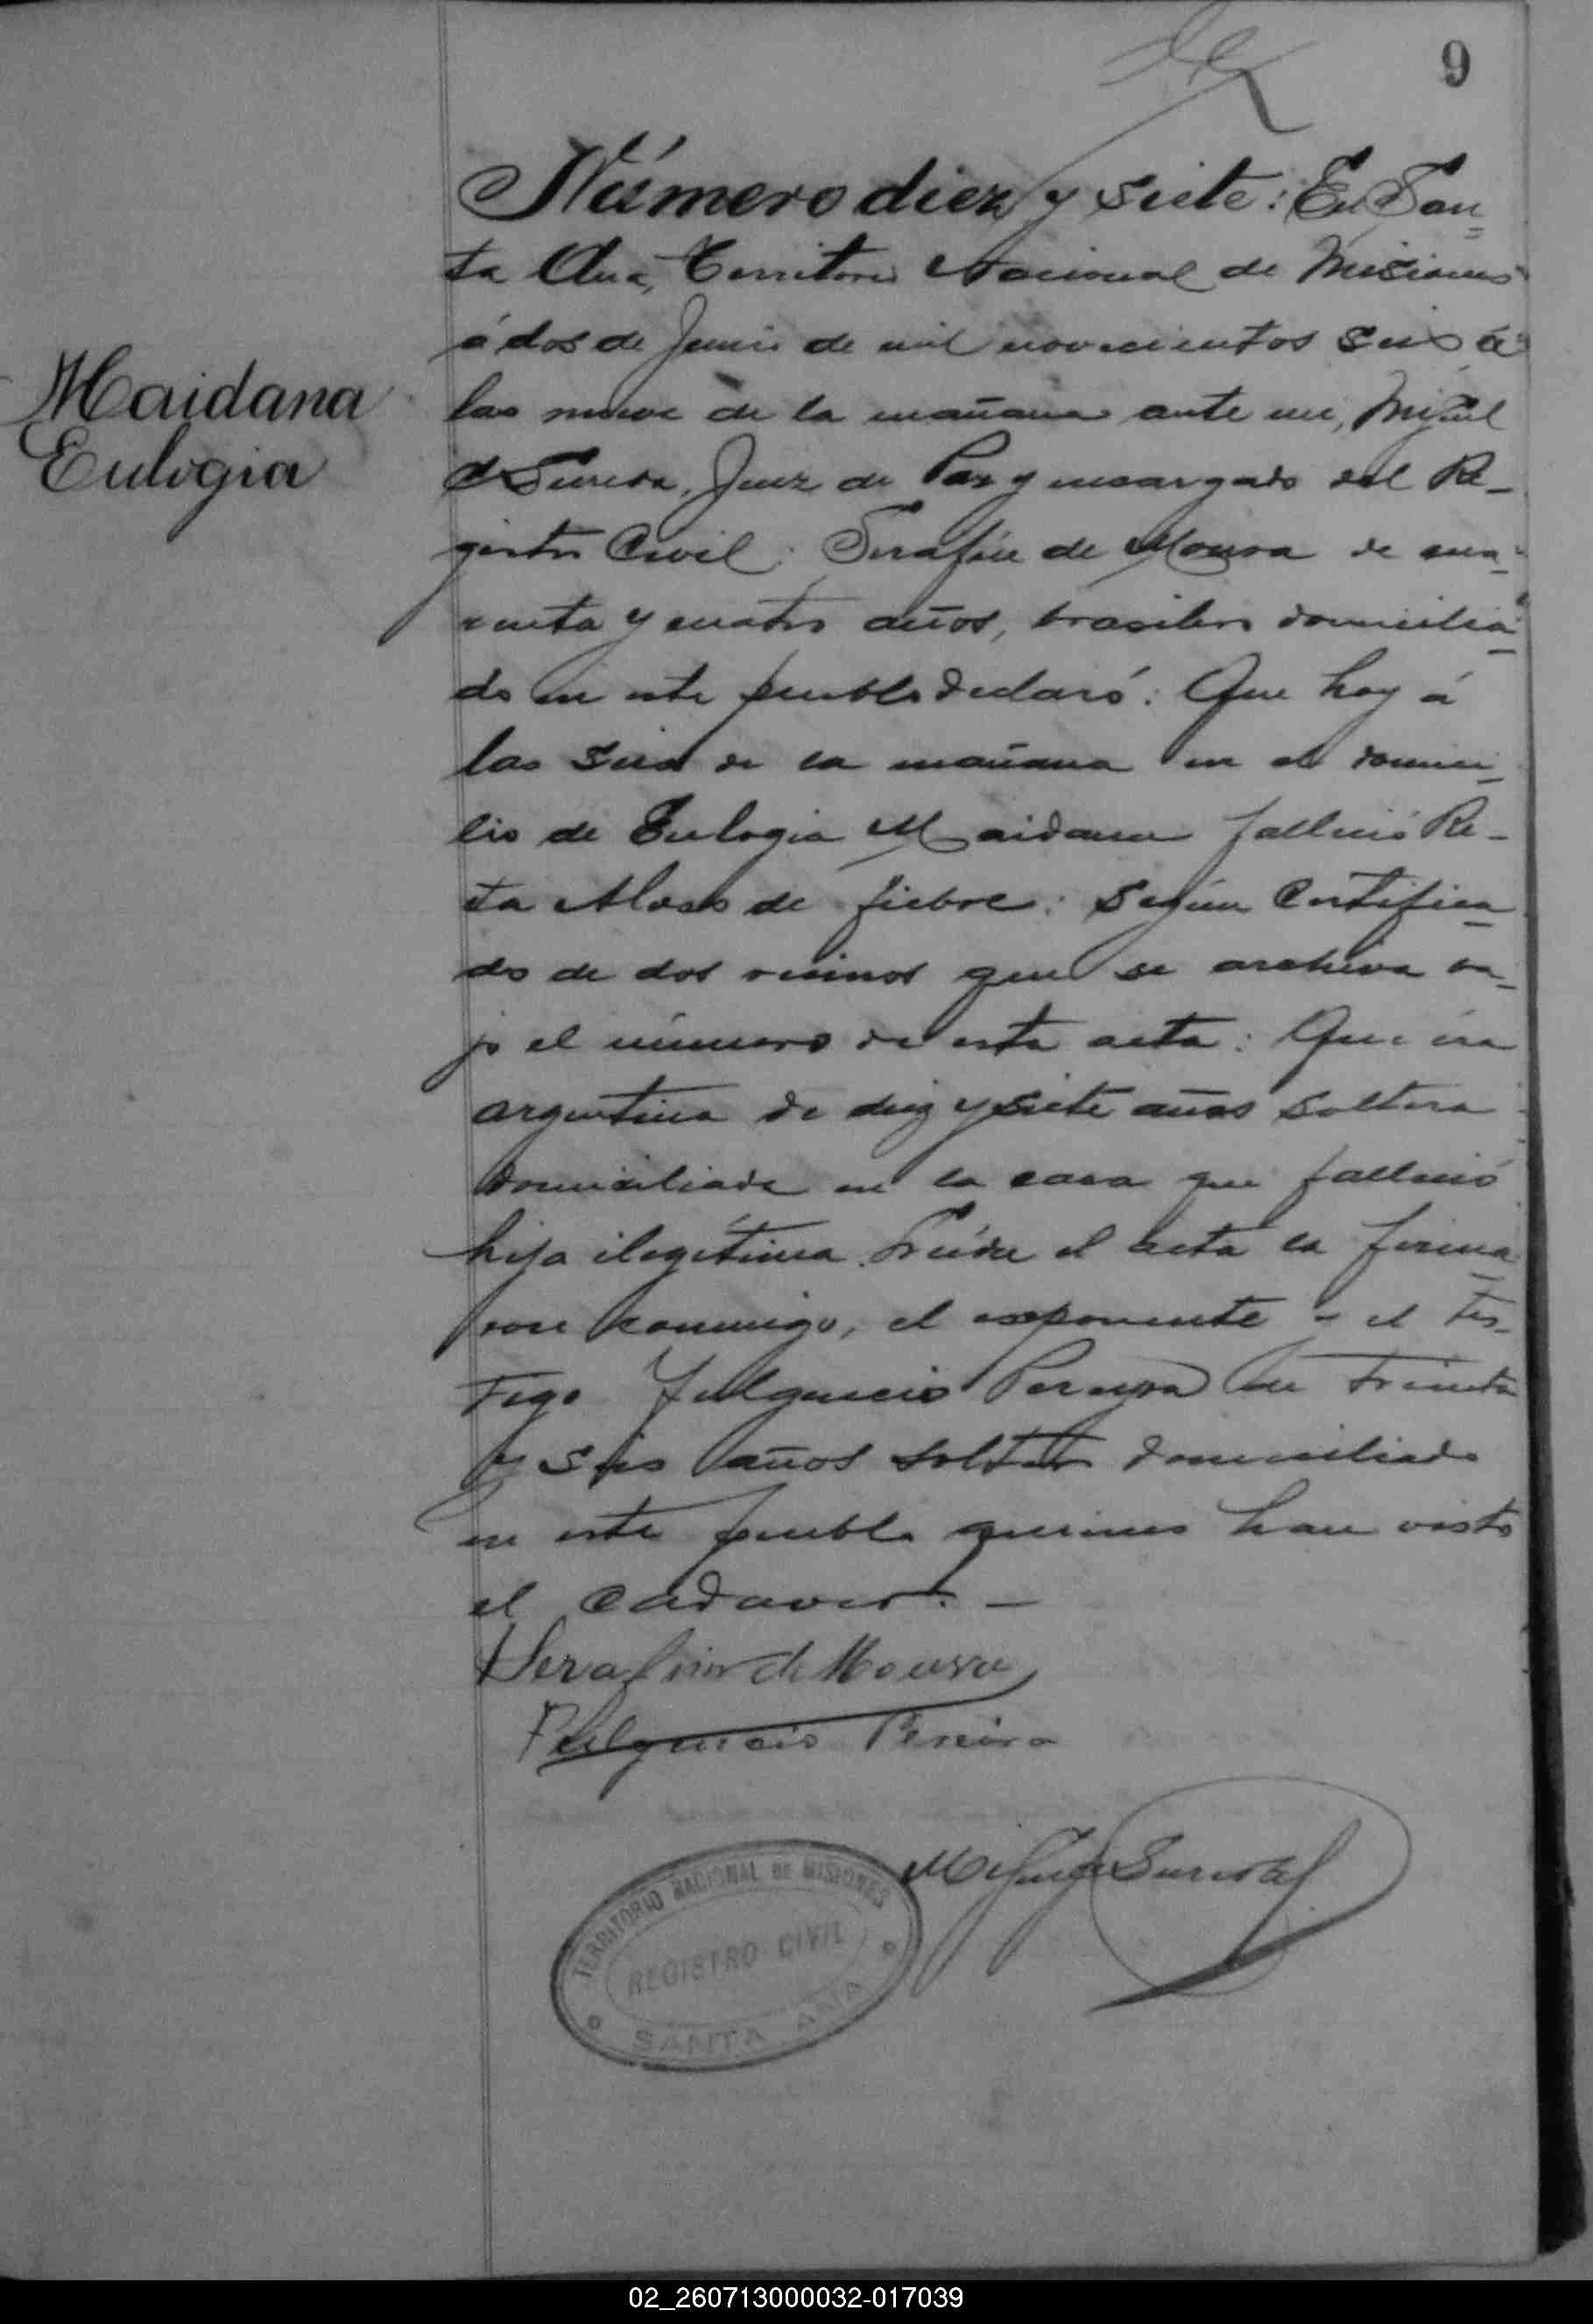 9
Número diez y siete: En San-
ta Ana, Territorio Nacional de Misiones
á dos de Junio de mil novecientos seis á
las nueve de la mañana ante mi, Miguel
de Juez de Paz y encargado del Re-
gistro Civil: Serafin de Moura de cua-
renta y cuatro años, brasilero domicilia-
do en este pueblo declaró: Que hoy á
las seis de la mañana en el domici-
lio de Eulogia Maidana falleció Re-
ta de fiebre: según certifica-
do de dos vecinos que se archiva ba-
jo el número de esta acta: Que era
argentina de diez y siete años soltera
domiciliada en la casa que falleció
hija ilegítima. Leida el acta la firma-
ron conmigo, el exponente y el tes-
tigo Fulgencio Pereyra de treinta
y seis años soltero domiciliado
en este pueblo quienes han visto
el cadaver. —
Maidana
Eulogia
Serafin de Moura
Fulgencio Pereira
Miguel
TERRITORIO NACIONAL DE MISIONES
REGISTRO CIVIL
SANTA ANA
02_260713000032-017039